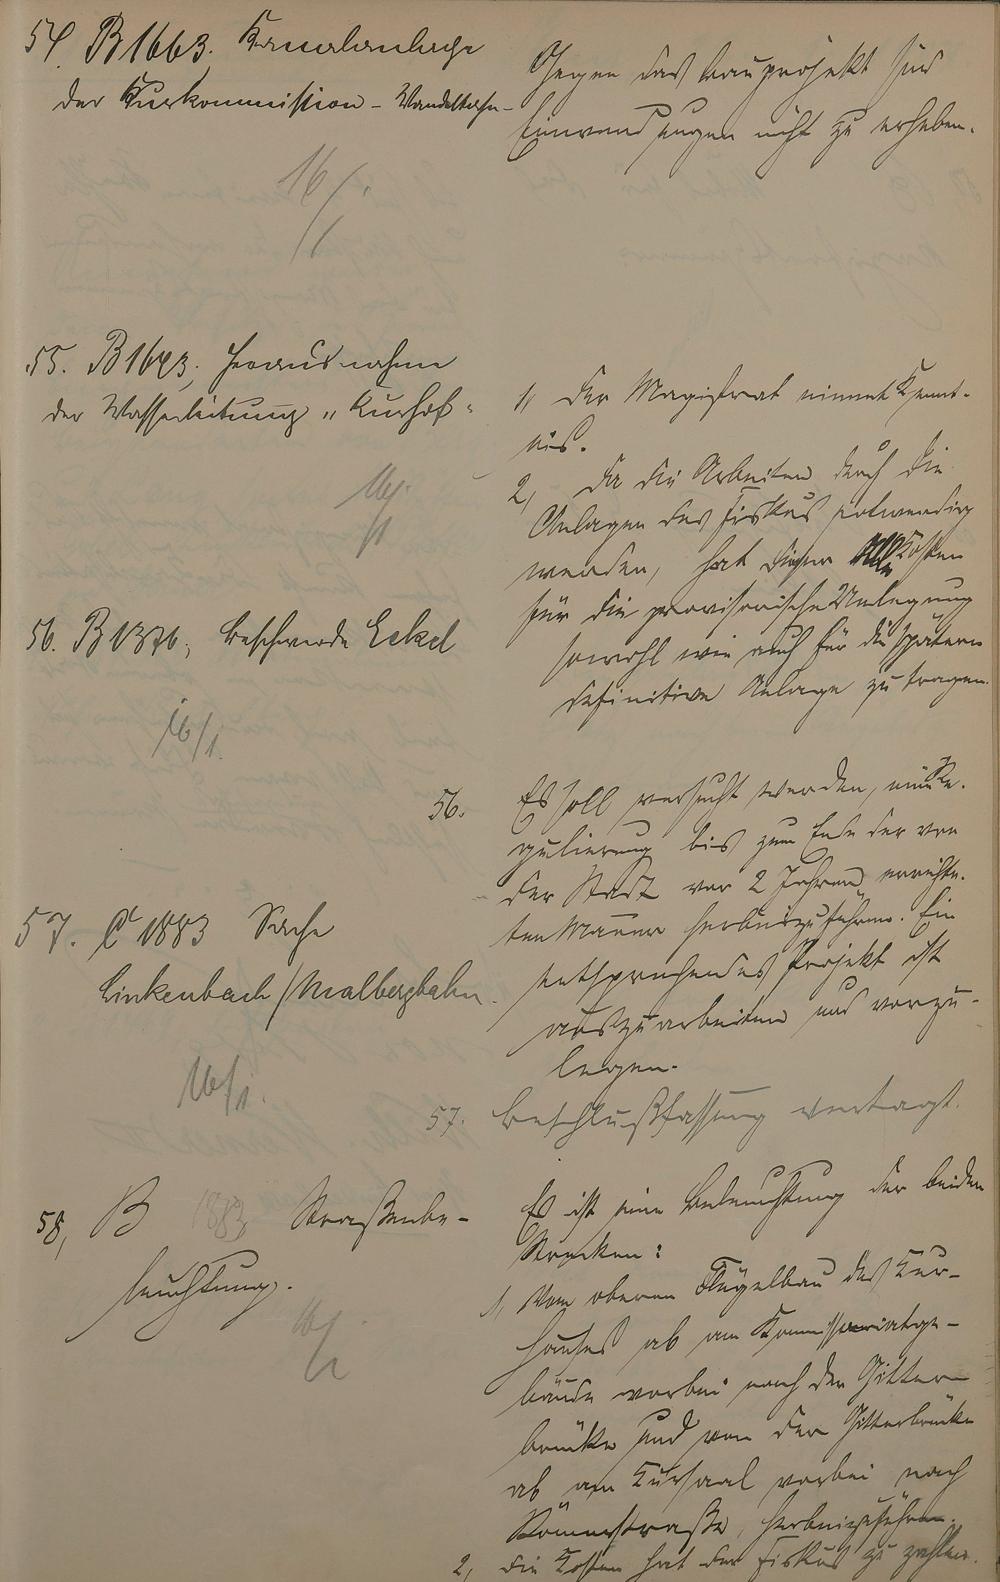 54. B 1663. Kanalanlage
der Kurkommission - Wandelhalle -
Gegen das Bauprojekt sind
Einwendungen nicht zu erheben.
16/1.
55. B 1643; Herausnahme
der Wasserleitung "Kurhof"
16/1
1, Der Magistrat nimmt Kennt-
nis.
2, Da die Arbeiten durch die
Anlagen des Fiskus notwendig
werden, hat dieser alle Kosten
für die provisorische Umlegung
sowohl wie auch für die spätere
definitive Anlage zu tragen.
56. B 1376; Beschwerde Eckel
16/1.
56. Es soll versucht werden, eine Re-
gulierung bis zum Ende der von
der Stadt vor 2 Jahren errichte-
ten Mauer herbeizuführen. Ein
entsprechendes Projekt ist
auszuarbeiten und vorzu-
legen.
57. C 1883 Sache
Linkenbach / Malbergbahn.
16/1.
57. Beschlußfassung vertagt.
58, B 1883 Straßenbe-
leuchtung.
16/1
Es ist eine Beleuchtung der beiden
Strecken:
1, Vom oberen Flügelbau des Kur-
hauses ab am Kommissariatge-
bäude vorbei nach der Gitter-
brücke und von der Gitterbrücke
ab am Kursaal vorbei nach
Römerstraße, herbeizuführen.
2, die Kosten hat der Fiskus zu zahlen.